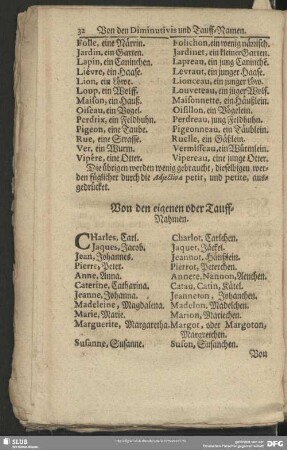 32 Von den Diminutivis und Tauff-Namen.
Folle, eine Närrin. Folichon, ein wenig närrisch.
Jardin, ein Garten. Jardinet, ein kleiner Garten.
Lapin, ein Caninchen. Lapreau, ein jung Caninchē.
Lièvre, ein Haase. Levraut, ein junger Haase.
Lion, ein Löwe. Lionceau, ein junger Löw.
Loup, ein Wolff. Louveteau, ein juger Wolf.
Maison, ein Hauß. Maisonnette, ein Häußlein.
Oiseau, ein Vogel. Oisillon, ein Vögelein.
Perdrix, ein Feldhuhn. Perdreau, jung Feldhuhn.
Pigeon, eine Taube. Pigeonneau, ein Täublein.
Rue, eine Strasse. Ruelle, ein Gäßlein.
Ver, ein Wurm. Vermisseau, ein Würmlein.
Vipère, eine Otter. Vipereau, eine junge Otter.
Die übrigen werden wenig gebraucht, dieselbigen werden
füglicher durch die Adjectiva petit, und petite, ausgedrücket.
Von den eigenen oder Tauff-
Nahmen.
CHarles, Carl. Charlot, Carlchen.
Jaques, Jacob. Jaquet, Jäckel.
Jean, Johannes. Jeannot, Hänßlein.
Pierre, Peter. Pierrot, Peterchen.
Anne, Anna. Annete, Nannon, Aenchen.
Caterine, Catharina. Catau, Catin, Kätel.
Jeanne, Johanna. Jeanneton, Johanchen.
Madeleine, Magdalena. Madelon, Madelchen.
Marie, Marie. Marion, Mariechen.
Marguerite, Margaretha. Margot, oder Margoton,
Margretchen.
Susanne, Susanne. Suson, Susanchen.
Von
SLUB
DFG